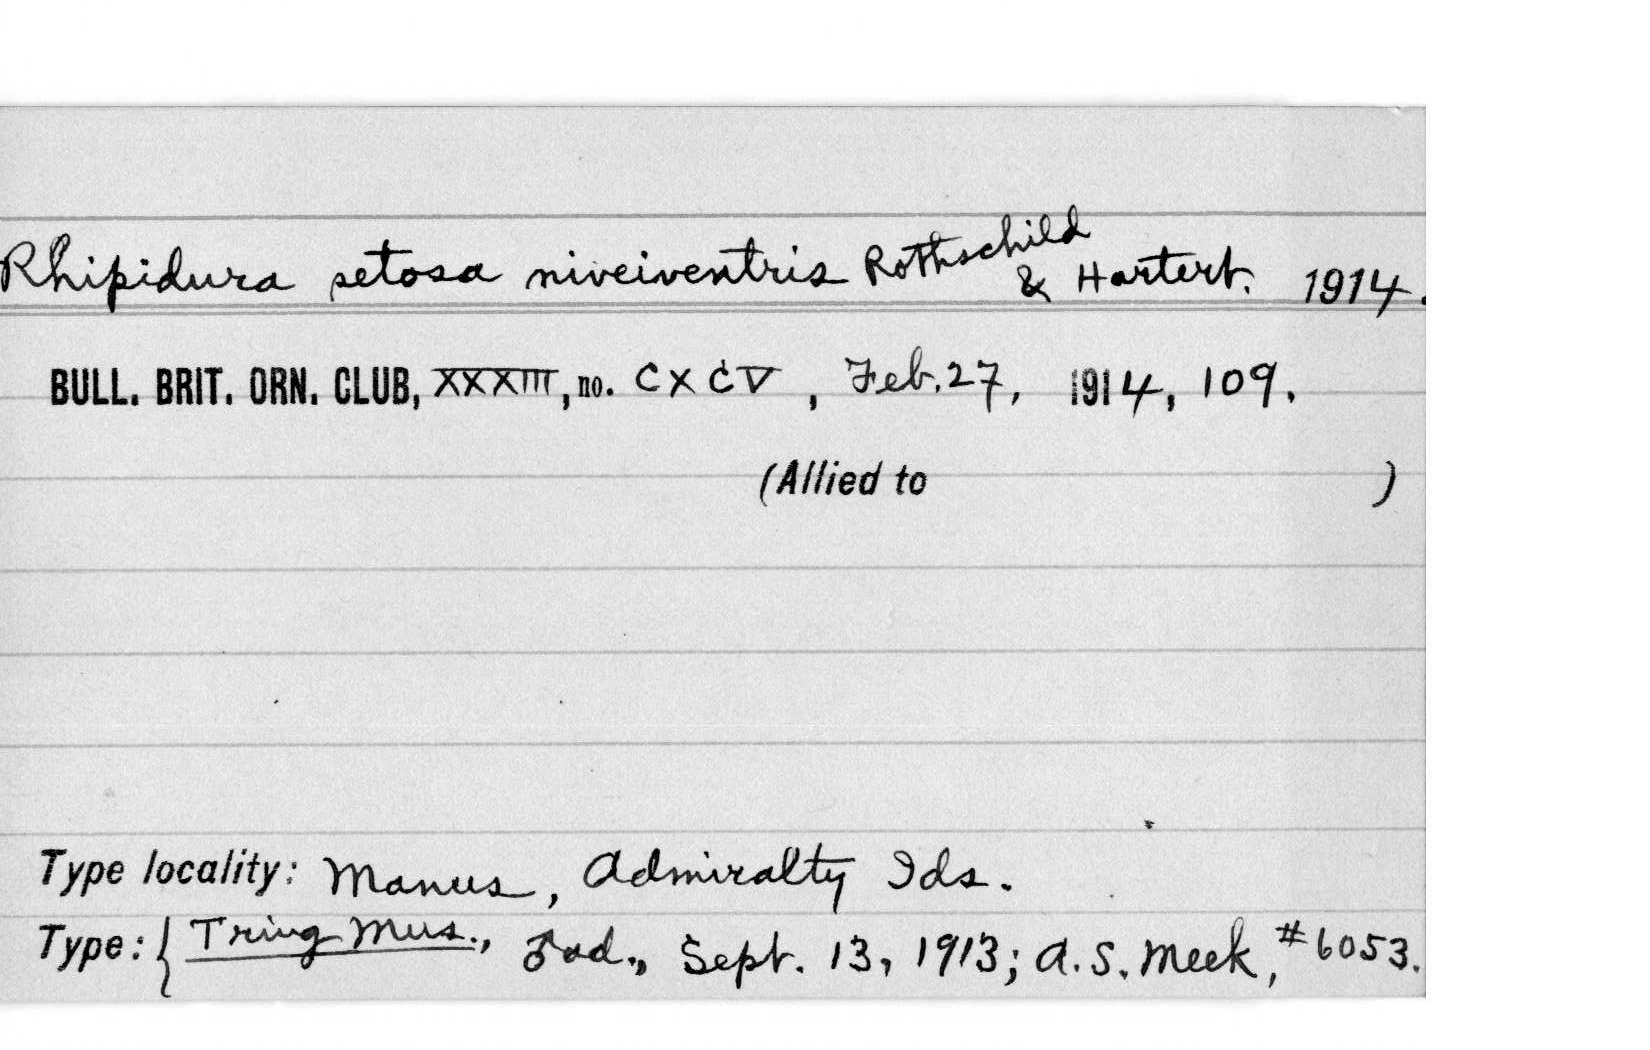 Rhipidura setosa niveiventris Rothschild & Hartert. 1914.
BULL. BRIT. ORN. CLUB, XXXIII, no. CXCV, Feb. 27, 1914, 109.
(Allied to )
Type locality: Manus, Admiralty Ids.
Type: { Tring Mus., ♂ ad., Sept. 13, 1913; A. S. Meek, #6053.